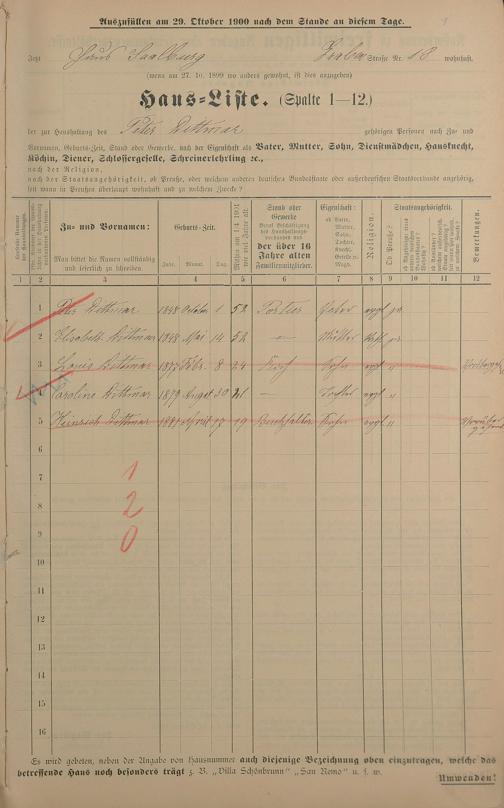 Auszufüllen am 29. Oktober 1900 nach dem Stande an diesem Tage.
Jetzt Haus Saalburg Straße Nr. 18 wohnhaft.
(wenn am 27. 10. 1899 wo anders gewohnt, ist dies anzugeben)
Haus-Liste. (Spalte 1—12.)
der zur Haushaltung des Peter Dittmar gehörigen Personen nach Zu- und
Vornamen, Geburts-Zeit, Stand oder Gewerbe, nach der Eigenschaft als Vater, Mutter, Sohn, Dienstmädchen, Hausknecht,
Köchin, Diener, Schlossergeselle, Schreinerlehrling ec.,
nach der Religion,
nach der Staatsangehörigkeit, ob Preuße, oder welchem anderen deutschen Bundesstaate oder außerdeutschen Staatsverbande angehörig,
seit wann in Preußen überhaupt wohnhaft und zu welchem Zwecke?
Zu- und Vornamen:
Man bittet die Namen vollständig
und leserlich zu schreiben
Geburts-Zeit.
Jahr. Monat. Tag.
Stand oder
Gewerbe
der über 16
Jahre alten
Familienmitglieder.
Eigenschaft:
ob Vater,
Mutter,
Sohn,
Tochter,
Knecht,
Magd.
Religion.
Staatsangehörigkeit.
Ob Preuße?
Bemerkungen.
1 2 3 4 5 6 7 8 9 10 11 12
1 Dittmar 1848 October 1 52 Portier Vater evgl ja
2 Elisabeth Dittmar 1848 Mai 14 52 — Mutter
3 Louis Dittmar Febr. 8 24 Koch Sohn evgl "
4 Caroline Dittmar 1879 August 30 21 — Tochter evgl "
5 Heinrich Dittmar 19 Buchhalter Sohn evgl "
6
7 1
8 2
9 0
10
11
12
13
14
15
16
Es wird gebeten, neben der Angabe von Hausnummer auch diejenige Bezeichnung oben einzutragen, welche das
betreffende Haus noch besonders trägt z. B. „Villa Schönbrunn" „San Remo" u. s. w.
Umwenden!